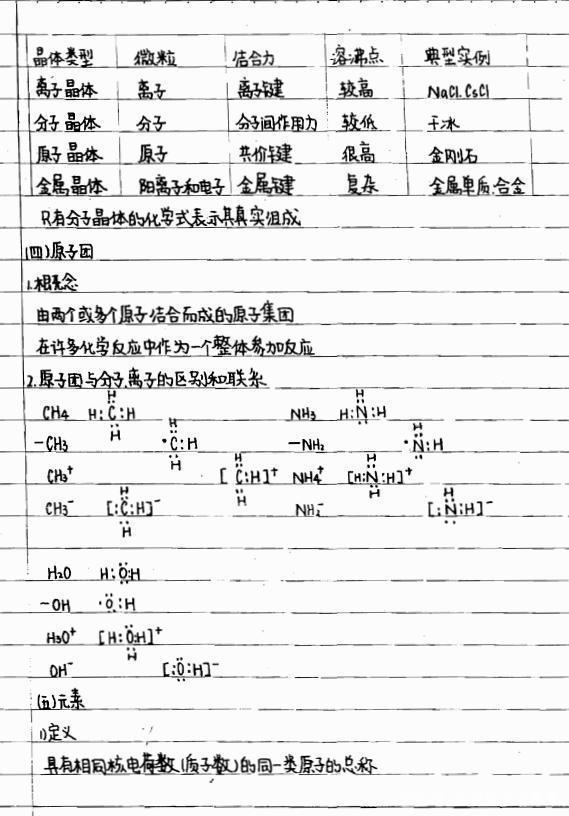 晶体类型 微粒 结合力 溶沸点 典型实例
离子晶体 离子 离子键 较高 NaCl.CsCl
分子晶体 分子 分子间作用力 较低 干冰
原子晶体 原子 共价键 很高 金刚石
金属晶体 阳离子和电子 金属键 复杂 金属单质.合金
只有分子晶体的化学式表示其真实组成
(四)原子团
1.概念
由两个或多个原子结合而成的原子集团
在许多化学反应中作为一个整体参加反应
2.原子团与分子.离子的区别和联系
H H
CH4 H:C:H NH3 H:N:H
H
H H
-CH3 ·C:H -NH2 ·N:H
H
H H
CH3+ [C:H]+ NH4+ [H:N:H]+
H H
H H
CH3- [:C:H]- NH2- [:N:H]-
H
H2O H:O:H
-OH ·O:H
H3O+ [H:O:H]+
H
OH- [:O:H]-
(五)元素
1)定义
具有相同核电荷数(质子数)的同一类原子的总称